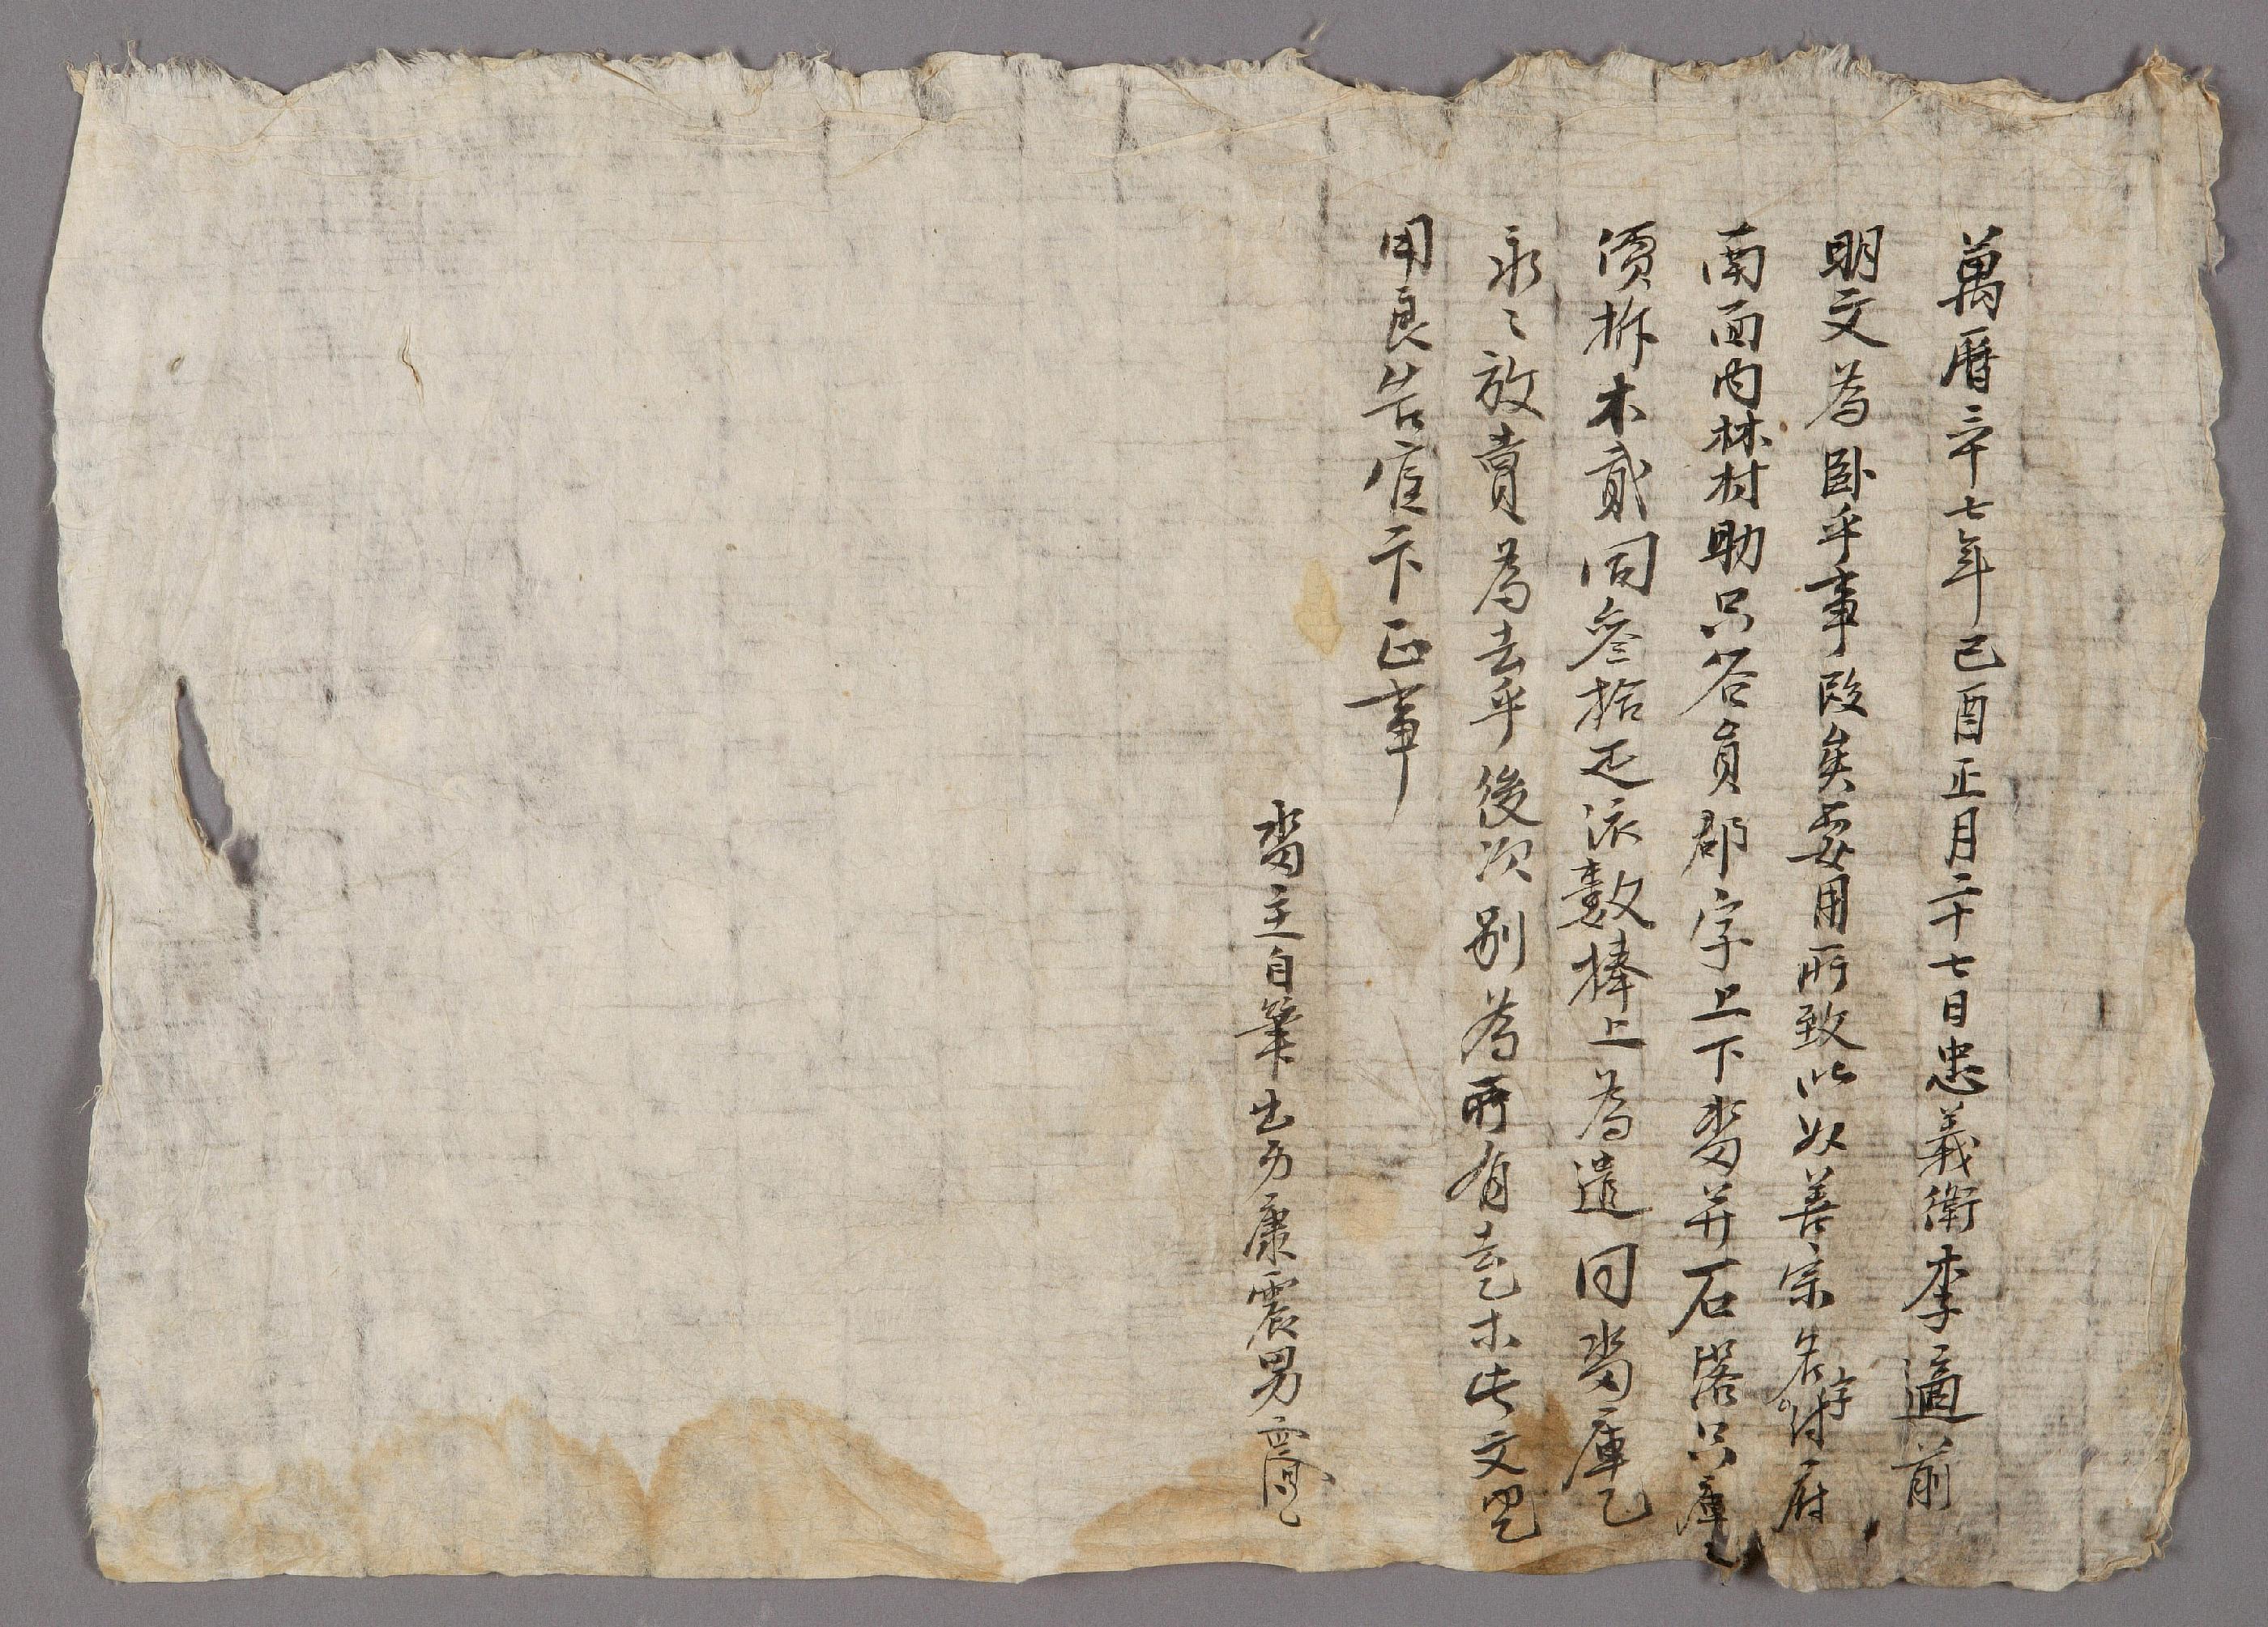 萬曆三十七年己酉正月二十七日忠義衛李適前
明文為臥乎事段矣要用所致以奴善宗名字付府
南面內林村助只谷員郡字上下畓并石落只庫乙
價折木貳同叄拾疋依數捧上為遣同畓庫乙
永〻放賣為去乎後次別為所有去乙等此文記
用良告官卞正事
畓主自筆出身康震男